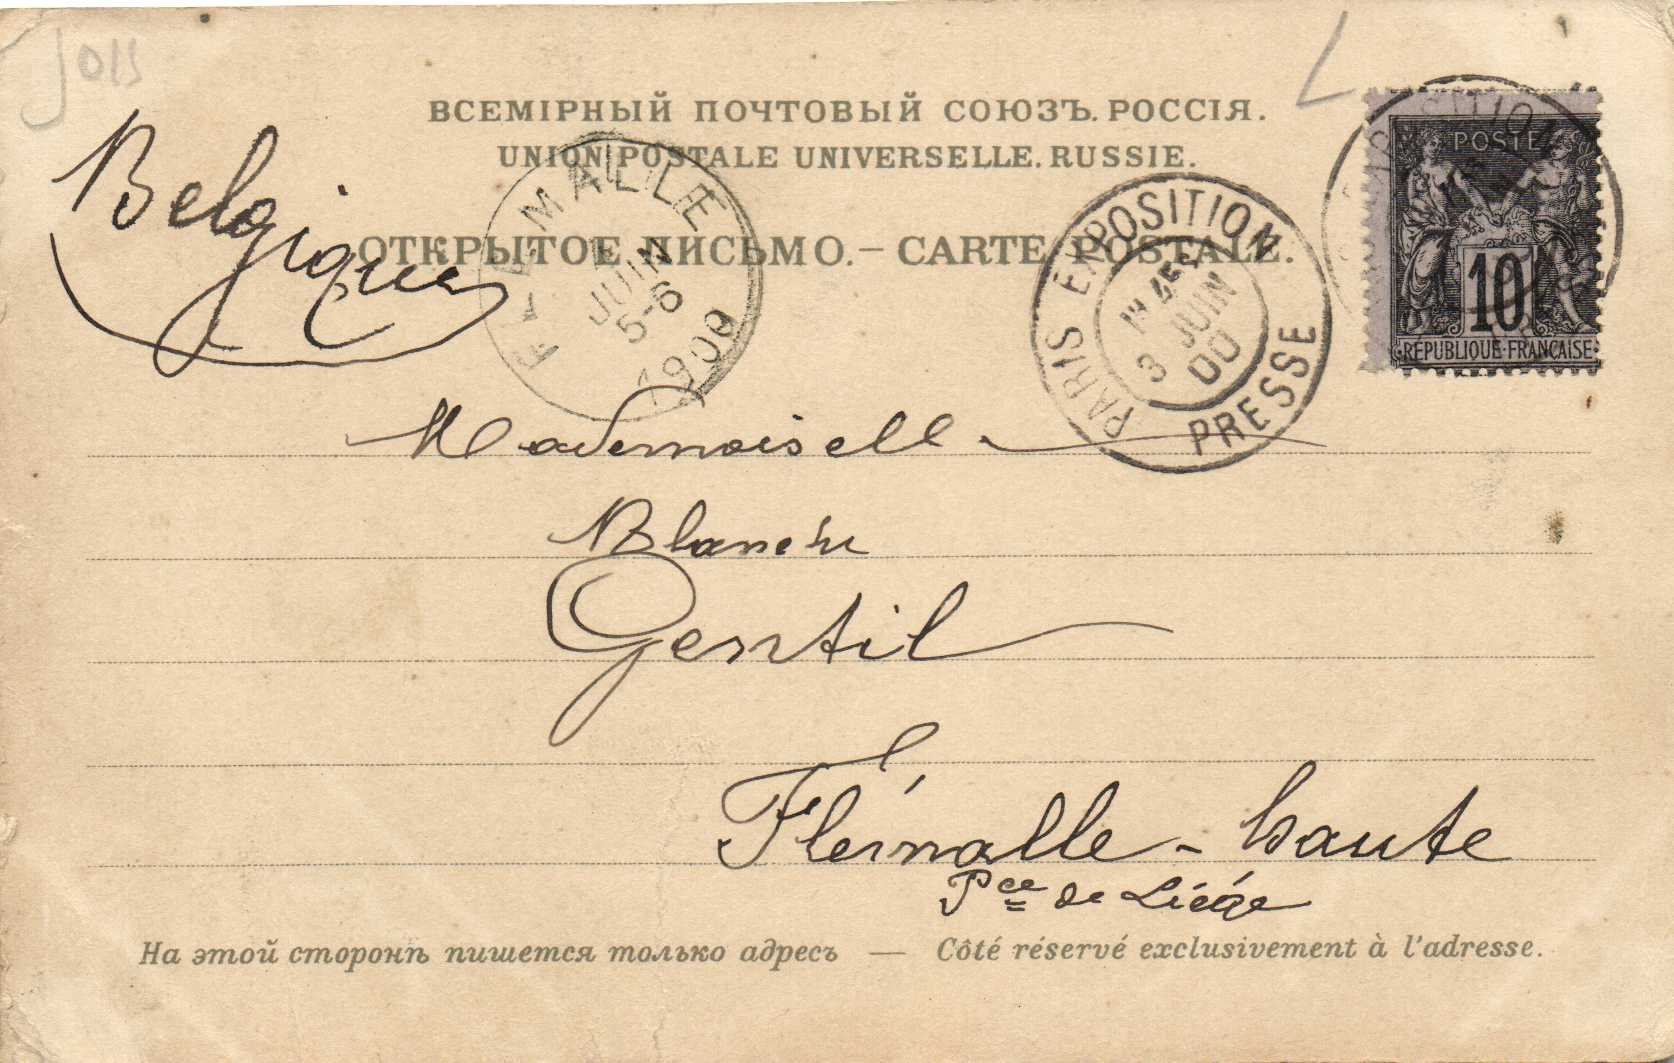 ВСЕМІРНЫЙ ПОЧТОВЫЙ СОЮЗЪ. РОССІЯ.
UNION POSTALE UNIVERSELLE. RUSSIE.
ОТКРЫТОЕ ПИСЬМО. — CARTE POSTALE.
Belgique
FLÉMALLE
JUIN
5-6
1900
PARIS EXPOSITION
3 JUIN 00
PRESSE
EXPOSITION
POSTE
10
RÉPUBLIQUE FRANÇAISE
Mademoiselle
Blanche
Gentil
Flémalle - haute
Pce de Liége
На этой сторонѣ пишется только адресъ — Côté réservé exclusivement à l'adresse.